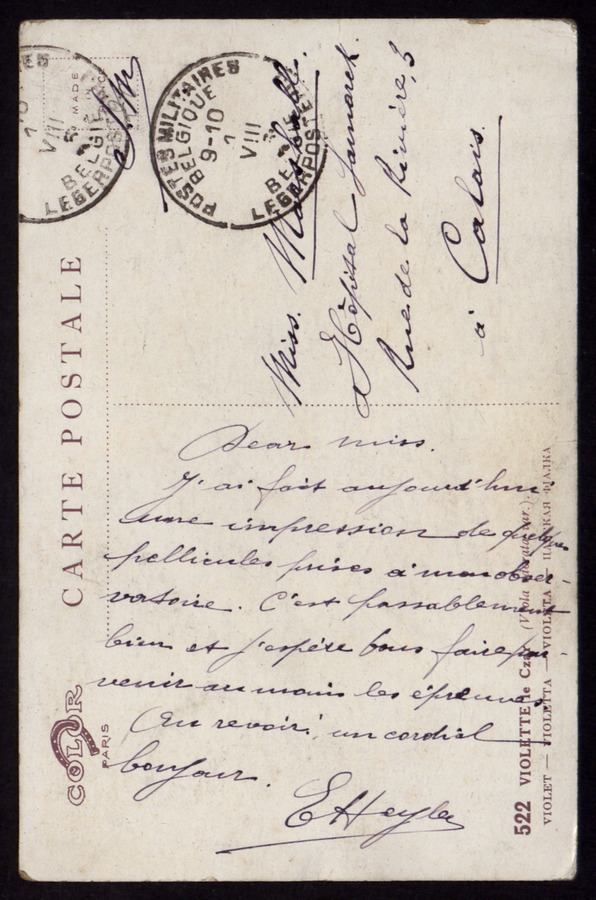 CARTE POSTALE
COLOR
PARIS
MADE
POSTES MILITAIRES
BELGIQUE
9-10
1
VIII
BELGIE
LEGERPOST
VIII
BELGIE
LEGERPOS
S.M.
Miss.
Hôpital Lamarck.
Rue de la Rivière, 3
à Calais.
Dear miss.
J'ai fait aujourd'hui
une impression de quelques
pellicules prises à mon obser-
vatoire. C'est passablement
bien et j'espère vous faire par-
venir au moins les épreuves
Au revoir, un cordial
bonjour.
E Heyle
522 VIOLETTE le Czar (Viola odorata var.).
VIOLET — VIOLETTA — VIOLETA — ЦАРСКАЯ ФІАЛКА